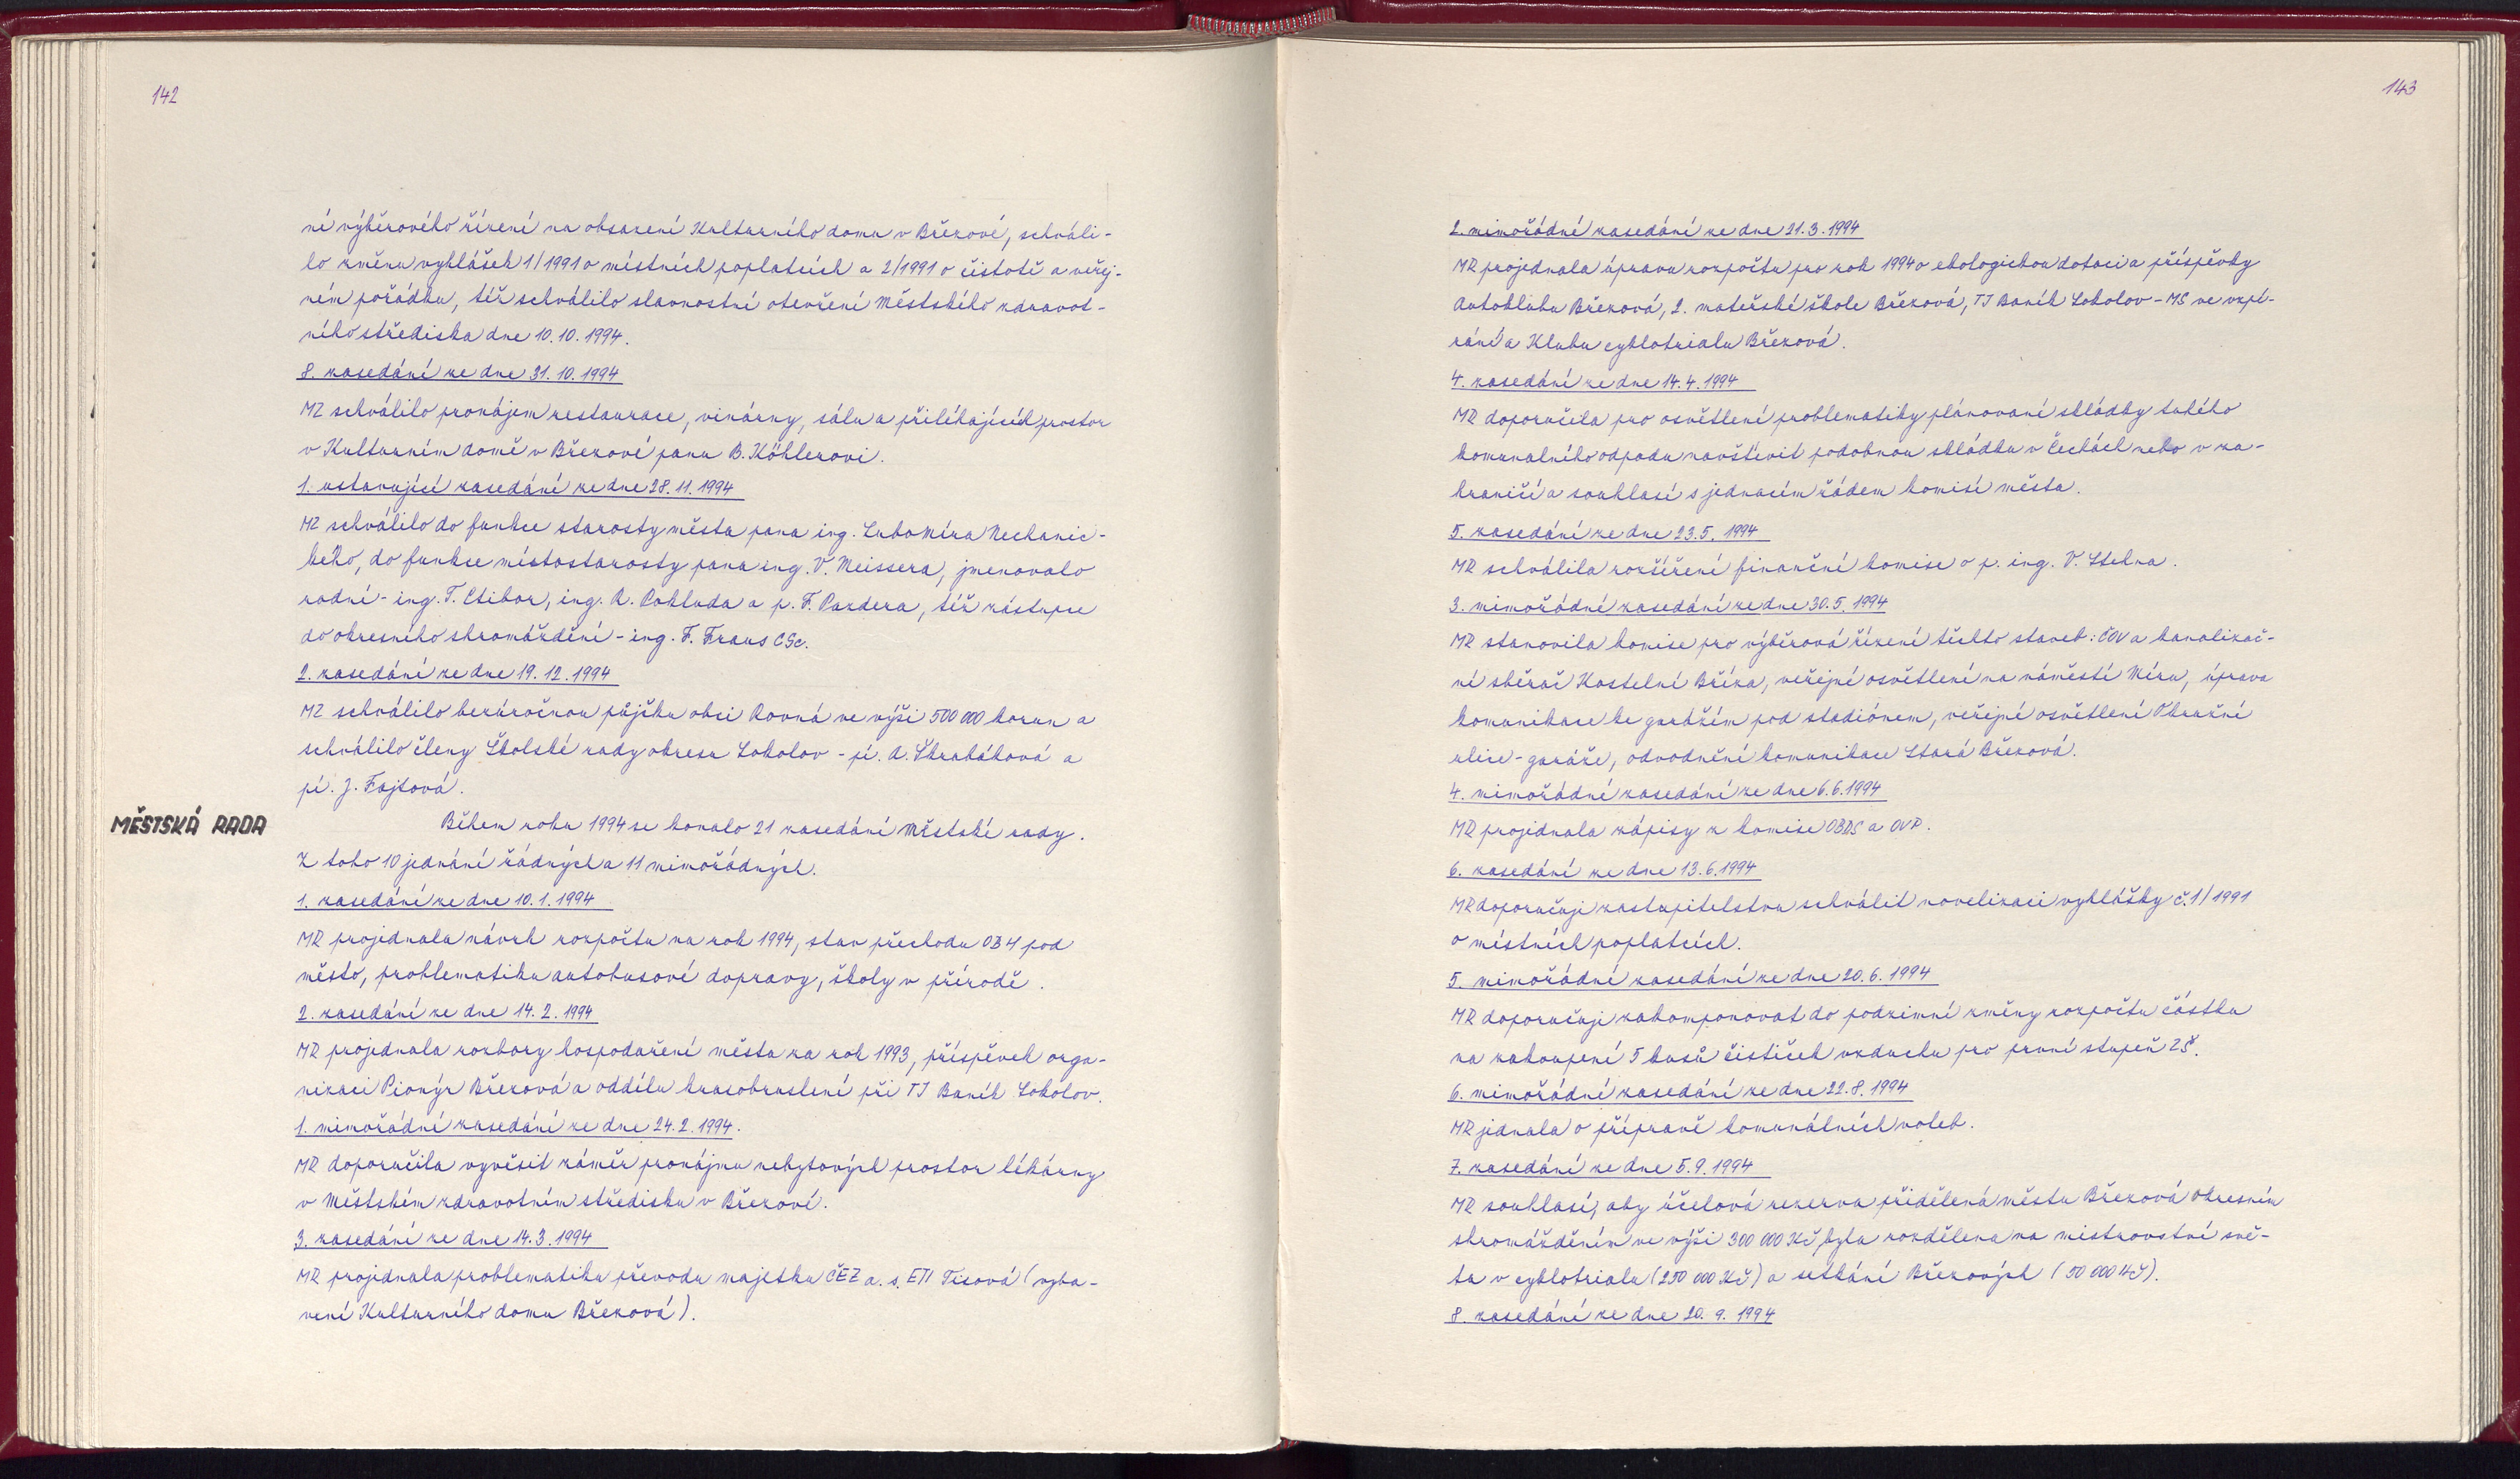 142
ní výběrového řízení na obsazení Kulturního domu v Březové, schváli-
lo změnu vyhlášek 1/1991 o místních poplatcích a 2/1991 o čistotě a veřej-
ném pořádku, též schválilo slavnostní otevření Městského zdravot-
ního střediska dne 10.10.1994.
8. zasedání ze dne 31.10.1994
MZ schválilo pronájem restaurace, vinárny, sálu a přiléhajících prostor
v Kulturním domě v Březové panu B. Köhlerovi.
1. ustavující zasedání ze dne 28.11.1994
MZ schválilo do funkce starosty města pana ing. Lubomíra Nechanic-
kého, do funkce místostarosty pana ing. V. Meissera, jmenovalo
radní - ing. T. Ctibor, ing. R. Pohluda a p. F. Pazdera, též zástupce
do okresního shromáždění - ing. F. Fraus CSc.
2. zasedání ze dne 19.12.1994
MZ schválilo bezúročnou půjčku obci Rovná ve výši 500 000 korun a
schválilo členy Školské rady okresu Sokolov - pí. A. Škrabáková a
pí. J. Fojtová.
MĚSTSKÁ RADA
Během roku 1994 se konalo 21 zasedání Městské rady.
Z toho 10 jednání řádných a 11 mimořádných.
1. zasedání ze dne 10.1.1994
MR projednala návrh rozpočtu na rok 1994, stav přechodu OB4 pod
město, problematiku autobusové dopravy, školy v přírodě.
2. zasedání ze dne 14.2.1994
MR projednala rozbory hospodaření města za rok 1993, příspěvek orga-
nizaci Pionýr Březová a oddílu krasobruslení při TJ Baník Sokolov.
1. mimořádné zasedání ze dne 24.2.1994.
MR doporučila vyvěsit záměr pronájmu nebytových prostor lékárny
v Městském zdravotním středisku v Březové.
3. zasedání ze dne 14.3.1994
MR projednala problematiku převodu majetku ČEZ a.s. ETI Tisová (vyba-
vení Kulturního domu Březová).
143
2. mimořádné zasedání ze dne 21.3.1994
MR projednala úpravu rozpočtu pro rok 1994 o ekologickou dotaci a příspěvky
Autoklubu Březová, 2. mateřské škole Březová, TJ Baník Sokolov - MS ve vzpí-
rání a Klubu cyklotrialu Březová.
4. zasedání ze dne 14.4.1994
MR doporučila pro osvětlení problematiky plánované skládky tuhého
komunalního odpadu navštívit podobnou skládku v Čechách nebo v za-
hraničí a souhlasí s jednacím řádem komisí města.
5. zasedání ze dne 23.5.1994
MR schválila rozšíření finanční komise o p. ing. V. Stehna.
3. mimořádné zasedání ze dne 30.5.1994
MR stanovila komise pro výběrová řízení těchto staveb: ČOV a kanalizač-
ní sběrač Kostelní Bříza, veřejné osvětlení na náměstí Míru, úprava
komunikace ke garážím pod stadiónem, veřejné osvětlení Okružní
ulice - garáže, odvodnění komunikace Stará Březová.
4. mimořádné zasedání ze dne 6.6.1994
MR projednala zápisy z komise OBDS a OVP.
6. zasedání ze dne 13.6.1994
MR doporučuje zastupitelstvu schválit novelizaci vyhlášky č.1/1991
o místních poplatcích.
5. mimořádné zasedání ze dne 20.6.1994
MR doporučuje zakomponovat do podzimní změny rozpočtu částku
na zakoupení 5 kusů čističek vzduchu pro první stupeň ZŠ.
6. mimořádné zasedání ze dne 22.8.1994
MR jednala o přípravě komunálních voleb.
7. zasedání ze dne 5.9.1994
MR souhlasí, aby účelová rezerva přidělená městu Březová Okresním
shromážděním ve výši 300 000 Kč, byla rozdělena na mistrovství svě-
ta v cyklotrialu (250 000 Kč) a setkání Březových (50 000 Kč).
8. zasedání ze dne 20.9.1994